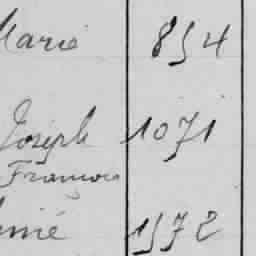 Marie 854
Joseph 1071
François
1572